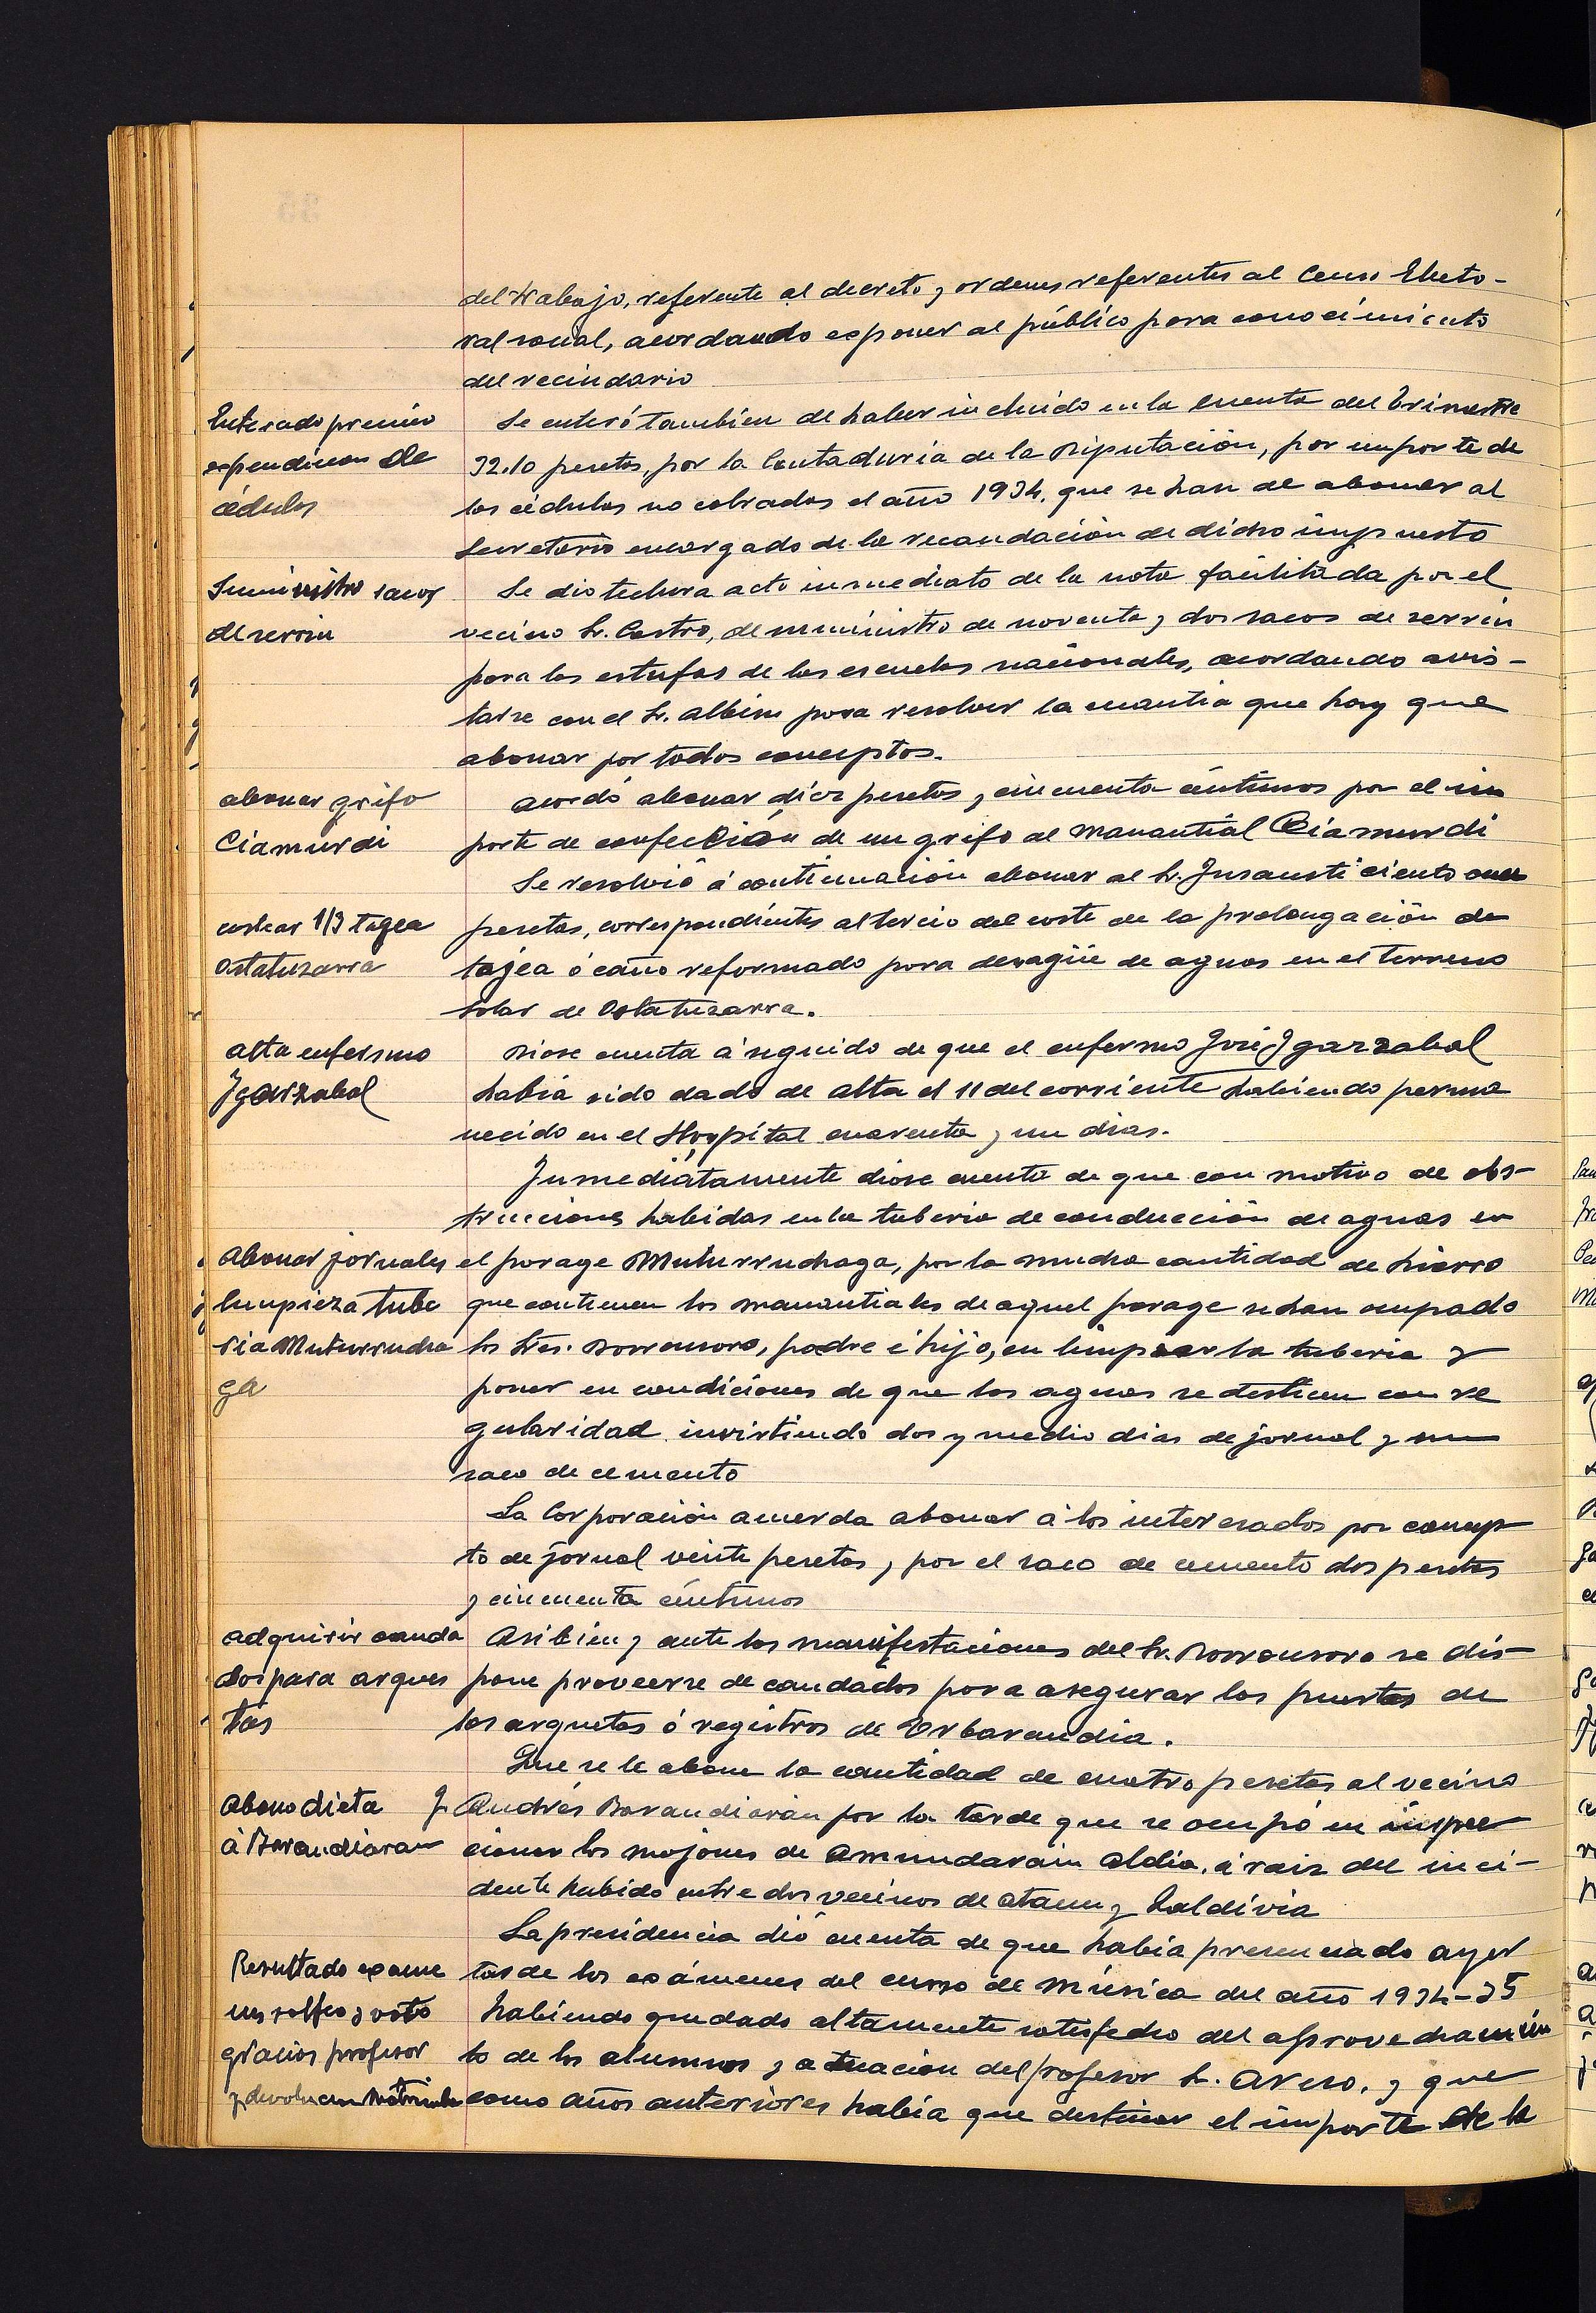 del trabajo, referente al decreto y ordenes referentes al Censo Electo-
ral social, acordando exponer al público para conocimiento
del vecindario
Enterado premio
expendicion de
cédulas
Se enteró tambien de haber incluido en la cuenta del trimestre
32.10 pesetas, por la Contaduria de la Diputación, por importe de
las cédulas no cobradas el año 1934, que se han de abonar al
Secretario encargado de la recaudación de dicho impuesto
Suministro sacos
de serrin
Se dio lectura acto inmediato de la nota facilitada por el
vecino Sr. Castro, de suministro de noventa y dos sacos de serrin
para las estufas de las escuelas nacionales, acordando avis-
tarse con el Sr. Albisu para resolver la cuantia que hay que
abonar por todos conceptos.
abonar grifo
Ciamurdi
Acordó abonar diez pesetas y cincuenta céntimos por el im
porte de confección de un grifo al manantial Ciamurdi
Se resolvió á continuación abonar al Sr. Insausti ciento once
costear 1/3 tagea
Ostatuzarra
pesetas, correspondientes al tercio del coste de la prolongación de
tajea ó caño reformado para desagüe de aguas en el terreno
solar de Ostatuzarra.
alta enfermo
Igarzabal
Diose cuenta á seguido de que el enfermo José Igarzabal
habia sido dado de alta el 11 del corriente habiendo perma
necido en el Hospital cuarenta y un dias.
Inmediatamente diose cuenta de que con motivo de obs-
trucciones habidas en la tuberia de conducción de aguas en
Abonar jornales
limpieza tube
ria Muturrucha
ga
el parage Muturruchaga, por la mucha cantidad de hierro
que contienen los manantiales de aquel parage se han ocupado
los Sres. Dorronsoro, padre é hijo, en limpiar la tuberia y
poner en condiciones de que las aguas se deslicen con re
gularidad invirtiendo dos y medio dias de jornal y un
saco de cemento
La Corporación acuerda abonar á los interesados por concep
to de jornal veinte pesetas y por el saco de cemento dos pesetas
y cincuenta céntimos
adquirir canda
dos para arque
tas
Asi bien y ante las manifestaciones del Sr. Dorronsoro se dis-
pone proveerse de candados para asegurar las puertas de
las arquetas ó registros de Urbarandia.
Que se le abone la cantidad de cuatro pesetas al vecino
Abono dieta
á Barandiaran
Andrés Barandiarán por la tarde que se ocupó en inspec
cionar los mojones de Amundarain aldia, á raiz del inci-
dente habido entre dos vecinos de Ataun y Zaldivia
La presidencia dió cuenta de que habia presenciado ayer
Resultado exame
nes solfeo y voto
gracias profesor
y devolucion matricula
tarde los exámenes del curso de música del año 1934-35
habiendo quedado altamente satisfecho del aprovechamien
to de los alumnos y actuacion del profesor Sr. Areso, y que
como años anteriores habia que destinar el importe de la